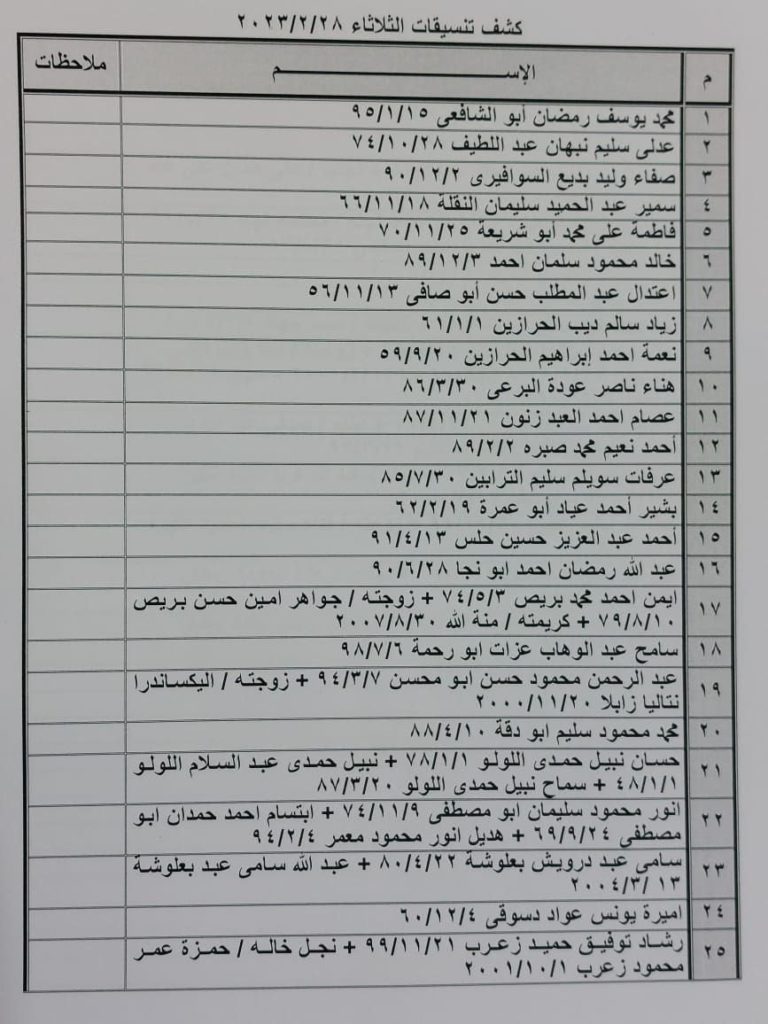 كشف تنسيقات الثلاثاء ٢٠٢٣/٢/٢٨
م الإســـــــــم ملاحظات
١ محمد يوسف رمضان أبو الشافعى ٩٥/١/١٥
٢ عدلى سليم نبهان عبد اللطيف ٧٤/١٠/٢٨
٣ صفاء وليد بديع السوافيرى ٩٠/١٢/٢
٤ سمير عبد الحميد سليمان النقلة ٦٦/١١/١٨
٥ فاطمة على محمد أبو شريعة ٧٠/١١/٢٥
٦ خالد محمود سلمان احمد ٨٩/١٢/٣
٧ اعتدال عبد المطلب حسن أبو صافى ٥٦/١١/١٣
٨ زياد سالم ديب الحرازين ٦١/١/١
٩ نعمة احمد إبراهيم الحرازين ٥٩/٩/٢٠
١٠ هناء ناصر عودة البرعى ٨٦/٣/٣٠
١١ عصام احمد العبد زنون ٨٧/١١/٢١
١٢ أحمد نعيم محمد صبره ٨٩/٢/٢
١٣ عرفات سويلم سليم الترابين ٨٥/٧/٣٠
١٤ بشير أحمد عياد أبو عمرة ٦٢/٢/١٩
١٥ أحمد عبد العزيز حسين حلس ٩١/٤/١٣
١٦ عبد الله رمضان احمد ابو نجا ٩٠/٦/٢٨
١٧ ايمن احمد محمد بريص ٧٤/٥/٣ + زوجته / جواهر امين حسن بريص
٧٩/٨/١٠ + كريمته / منة الله ٢٠٠٧/٨/٣٠
١٨ سامح عبد الوهاب عزات ابو رحمة ٩٨/٧/٦
١٩ عبد الرحمن محمود حسن ابو محسن ٩٤/٣/٧ + زوجته / اليكساندرا
نتاليا زابلا ٢٠٠٠/١١/٢٠
٢٠ محمد محمود سليم ابو دقة ٨٨/٤/١٠
٢١ حسان نبيل حمدى اللولو ٧٨/١/١ + نبيل حمدى عبد السلام اللولو
٤٨/١/١ + سماح نبيل حمدى اللولو ٨٧/٣/٢٠
٢٢ انور محمود سليمان ابو مصطفى ٧٤/١١/٩ + ابتسام احمد حمدان ابو
مصطفى ٦٩/٩/٢٤ + هديل انور محمود معمر ٩٤/٢/٤
٢٣ سامى عبد درويش بعلوشة ٨٠/٤/٢٢ + عبد الله سامى عبد بعلوشة
٢٠٠٤/٣/ ١٣
٢٤ اميرة يونس عواد دسوقى ٦٠/١٢/٤
٢٥ رشاد توفيق حميد زعرب ٩٩/١١/٢١ + نجل خاله / حمزة عمر
محمود زعرب ٢٠٠١/١٠/١